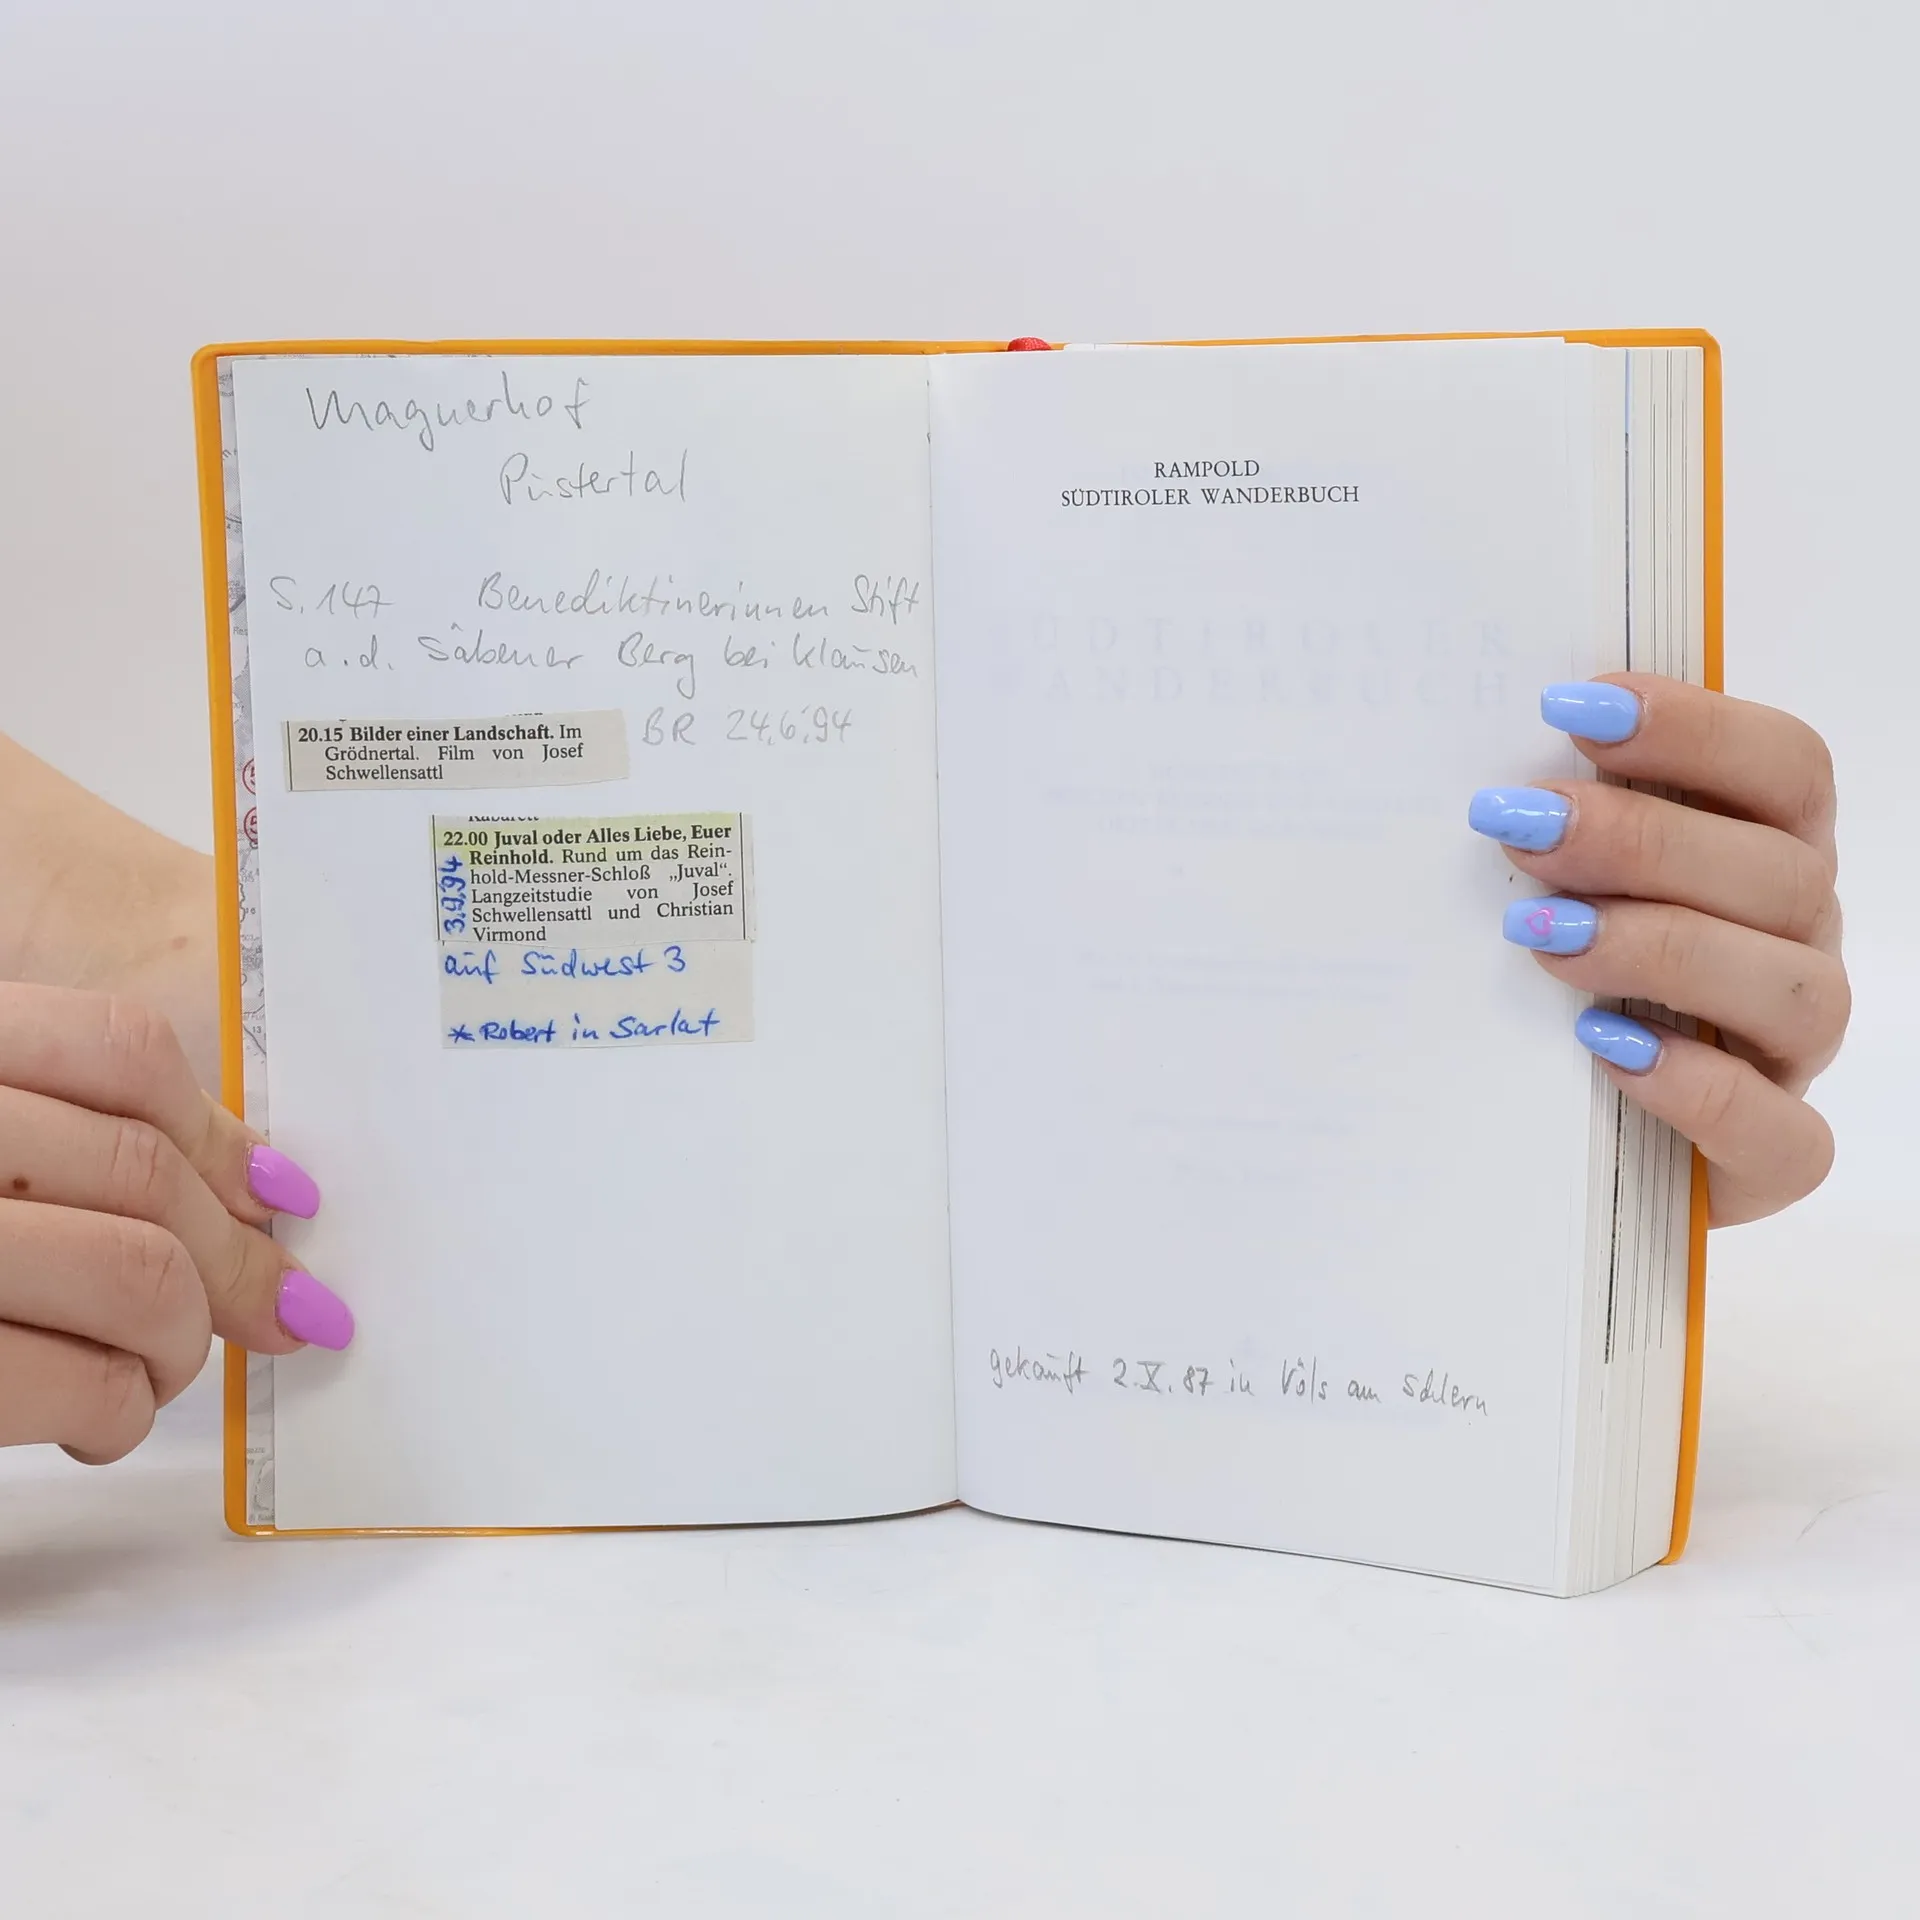 Magnerhof
Pustertal
S. 147 Benediktinerinnen Stift
a.d. Säbener Berg bei Klausen
BR 24.6.94
20.15 Bilder einer Landschaft. Im
Grödnertal. Film von Josef
Schwellensattl
Kabarett
22.00 Juval oder Alles Liebe, Euer
Reinhold. Rund um das Rein-
hold-Messner-Schloß „Juval“.
Langzeitstudie von Josef
Schwellensattl und Christian
Virmond
3.9.94
auf Südwest 3
* Robert in Sarlat
RAMPOLD
SÜDTIROLER WANDERBUCH
SÜDTIROLER
WANDERBUCH
gekauft 2.X.87 in Völs am Schlern